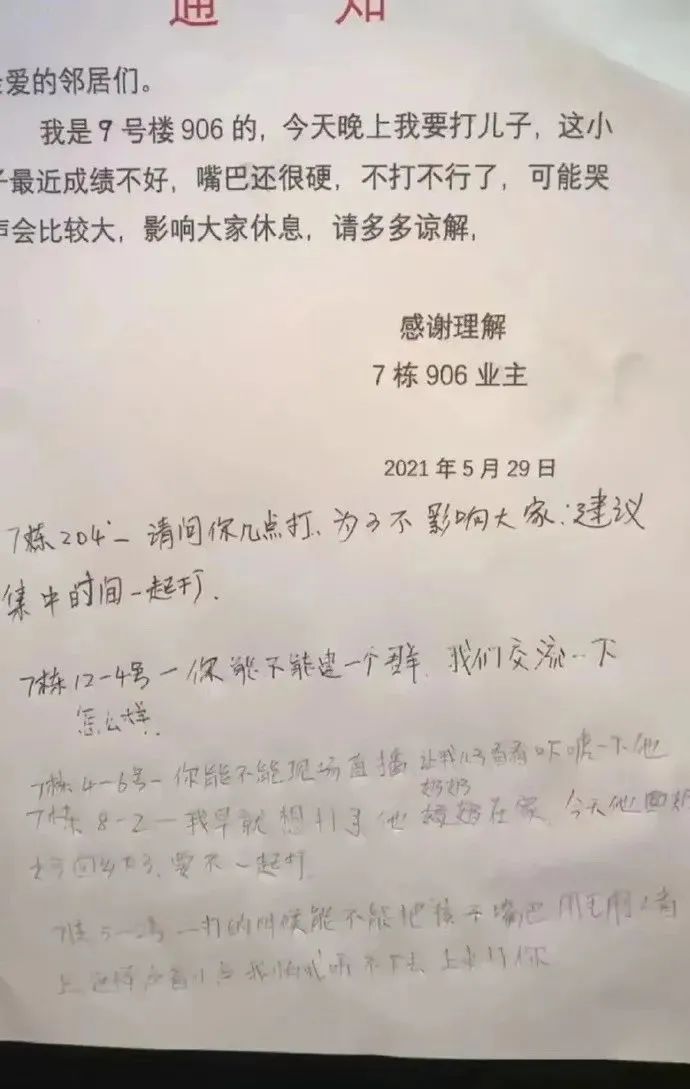 通 知
爱的邻居们。
我是9号楼906的，今天晚上我要打儿子，这小
子最近成绩不好，嘴巴还很硬，不打不行了，可能哭
声会比较大，影响大家休息，请多多谅解，
感谢理解
7栋906业主
2021年5月29日
7栋204－请问你几点打、为了不影响大家：建议
集中时间一起打.
7栋12-4号－你能不能建一个群，我们交流一下
怎么样.
7栋4-6号－你能不能现场直播 让我儿子看看吓唬一下他
奶奶
7栋8-2－我早就想打了他 奶奶在家，今天他
要不一起打.
打的时候能不能把孩子嘴巴用毛
上来打你